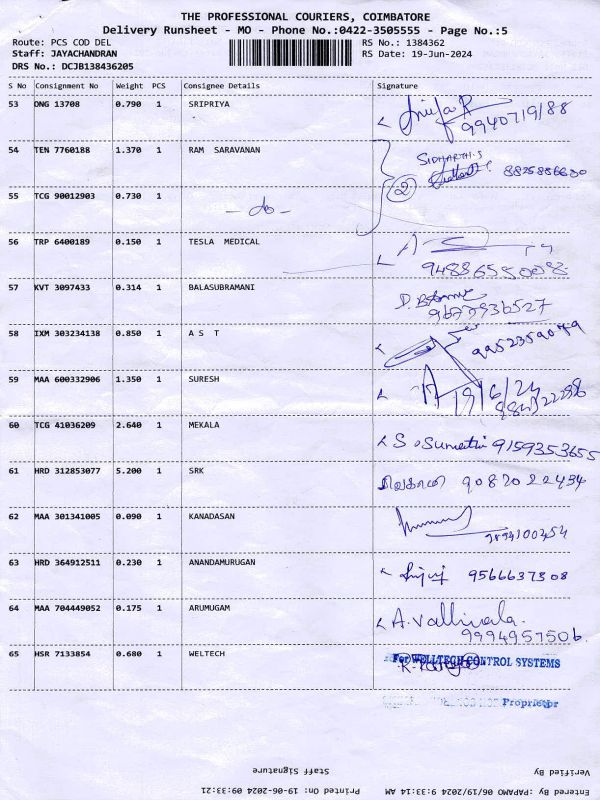 THE PROFESSIONAL COURIERS, COIMBATORE
Delivery Runsheet - MO - Phone No.:0422-3505555 - Page No.:5
Route: PCS COD DEL RS No.: 1384362
Staff: JAYACHANDRAN RS Date: 19-Jun-2024
DRS No.: DCJB138436205
S No Consignment No Weight PCS Consignee Details Signature
53 ONG 13708 0.790 1 SRIPRIYA 9940719188
54 TEN 7760188 1.370 1 RAM SARAVANAN SIDHARTH.S
55 TCG 90012903 0.730 1 -do- 2
56 TRP 6400189 0.150 1 TESLA MEDICAL
57 KVT 3097433 0.314 1 BALASUBRAMANI
58 IXM 303234138 0.850 1 A S T
59 MAA 600332906 1.350 1 SURESH 19/6/24
60 TCG 41036209 2.640 1 MEKALA S. Sumathi 9159353655
61 HRD 312853077 5.200 1 SRK 9087022434
62 MAA 301341005 0.090 1 KANADASAN 9894100454
63 HRD 364912511 0.230 1 ANANDAMURUGAN 9566637308
64 MAA 704449052 0.175 1 ARUMUGAM A. Vallinala 9994957506
65 HSR 7133854 0.680 1 WELTECH For WELLTECH CONTROL SYSTEMS
Proprietor
Staff Signature Verified By
Printed On: 19-06-2024 09:33:21 Entered By :PAPAMO 06/19/2024 9:33:14 AM